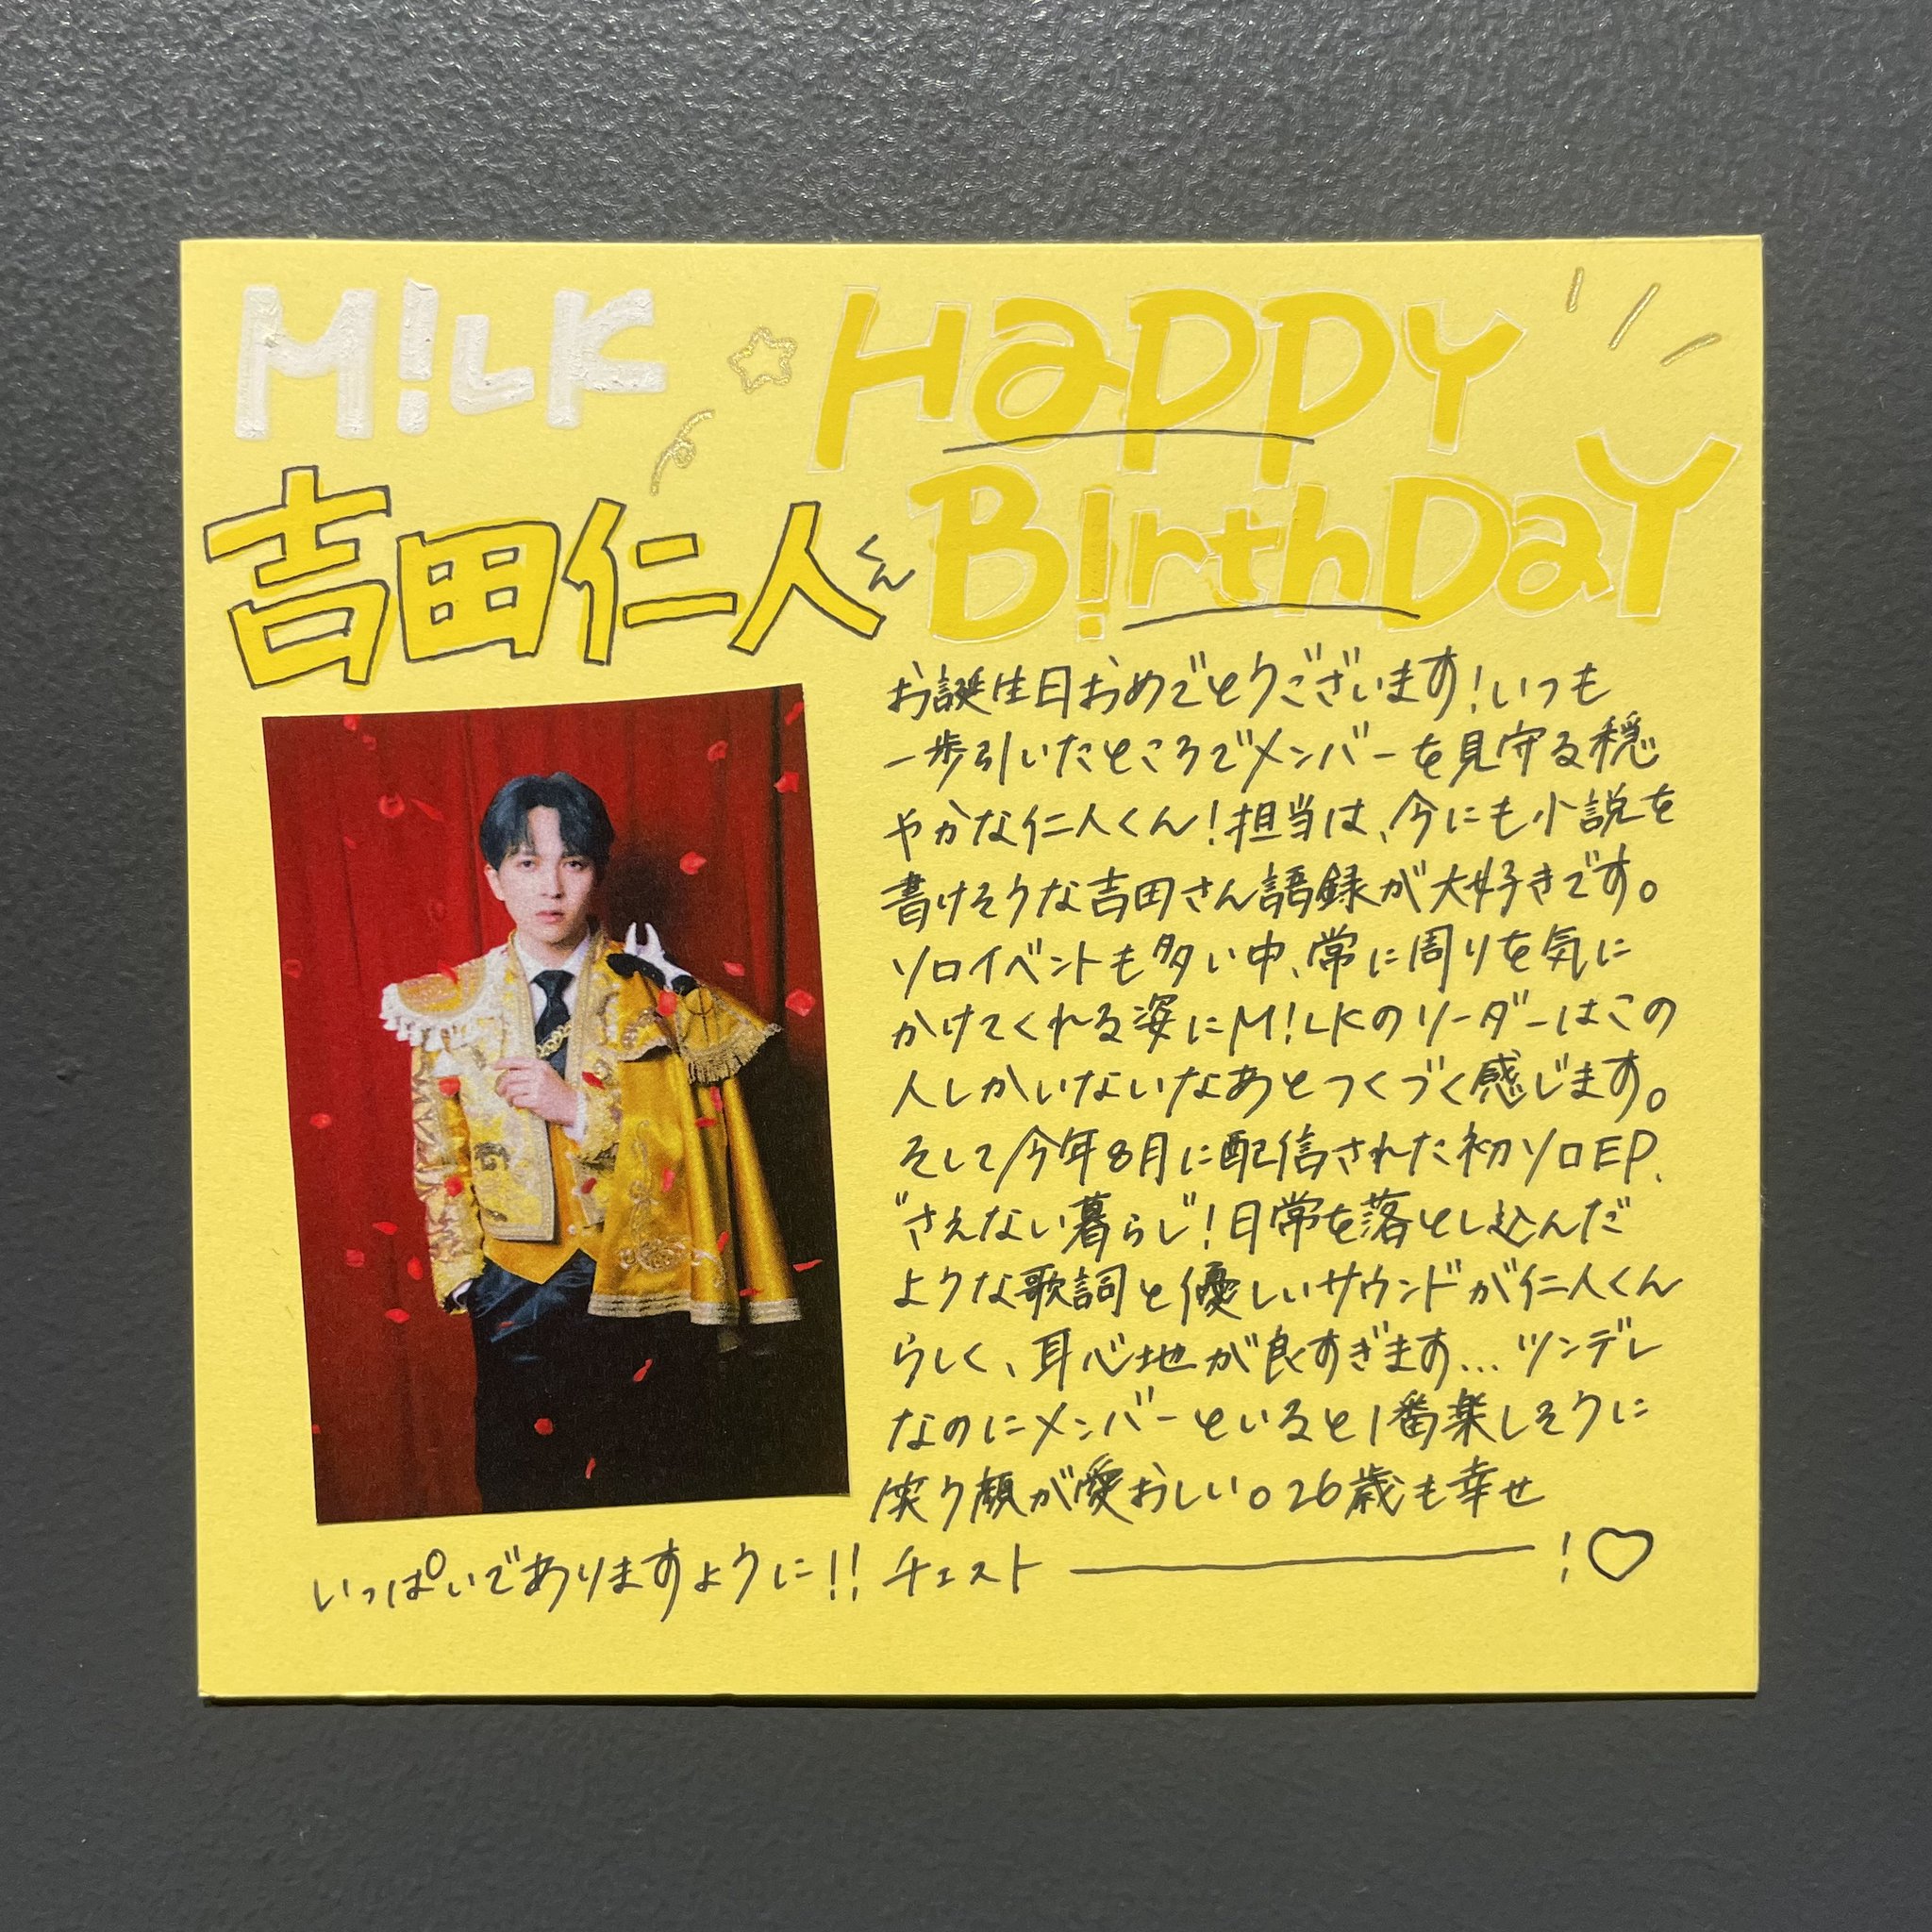 M!LK
Happy
B!rthDaY
吉田仁人くん
お誕生日おめでとうございます!いつも
一歩引いたところでメンバーを見守る穏
やかな仁人くん!担当は、今にも小説を
書けそうな吉田さん語録が大好きです。
ソロイベントも多い中、常に周りを気に
かけてくれる姿にM!LKのリーダーはこの
人しかいないなあとつくづく感じます。
そして今年8月に配信された初ソロEP、
"さえない暮らし"!日常を落とし込んだ
ような歌詞と優しいサウンドが仁人くん
らしく、耳心地が良すぎます...ツンデレ
なのにメンバーといると1番楽しそうに
笑う顔が愛おしい。26歳も幸せ
いっぱいでありますように!!チェストー!♡